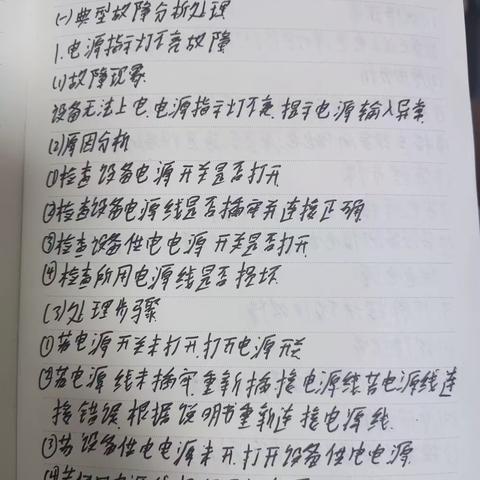 (一)典型故障分析处理
1.电源指示灯不亮故障
(1)故障现象
设备无法上电,电源指示灯不亮,提示电源输入异常
(2)原因分析
①检查设备电源开关是否打开
②检查设备电源线是否插牢并连接正确
③检查设备供电电源开关是否打开
④检查所用电源线是否损坏
(3)处理步骤
①若电源开关未打开,打开电源开关
②若电源线未插牢,重新插接电源线若电源线连
接错误,根据说明书重新连接电源线
③若设备供电电源未开,打开设备供电电源